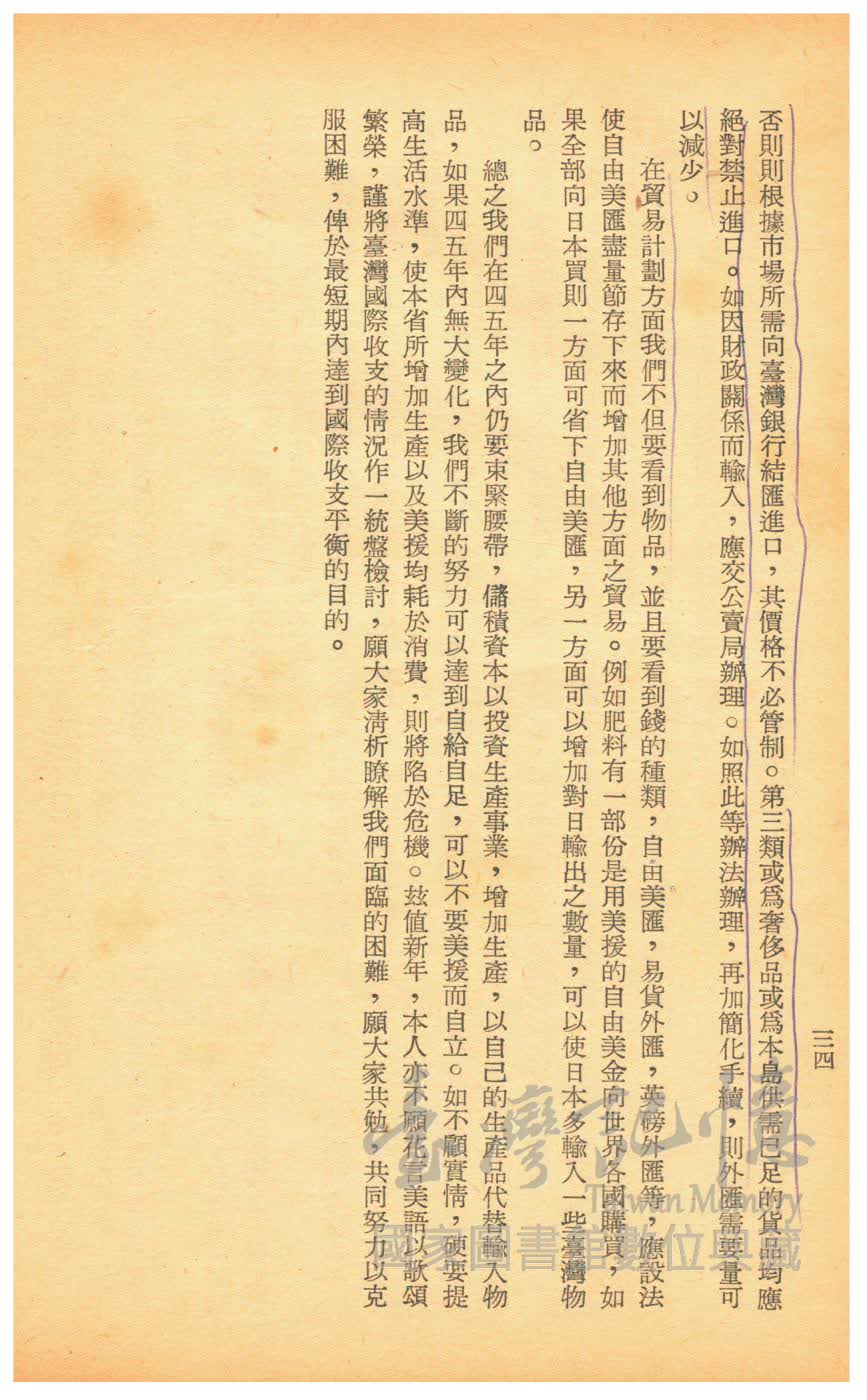 三四
否則則根據市場所需向臺灣銀行結匯進口，其價格不必管制。第三類或爲奢侈品或爲本島供需已足的貨品均應
絕對禁止進口。如因財政關係而輸入，應交公賣局辦理。如照此等辦法辦理，再加簡化手續，則外匯需要量可
以減少。
在貿易計劃方面我們不但要看到物品，並且要看到錢的種類，自由美匯，易貨外匯，英磅外匯等，應設法
使自由美匯盡量節存下來而增加其他方面之貿易。例如肥料有一部份是用美援的自由美金向世界各國購買，如
果全部向日本買則一方面可省下自由美匯，另一方面可以增加對日輸出之數量，可以使日本多輸入一些臺灣物
品。
總之我們在四五年之內仍要束緊腰帶，儲積資本以投資生產事業，增加生產，以自己的生產品代替輸入物
品，如果四五年內無大變化，我們不斷的努力可以達到自給自足，可以不要美援而自立。如不顧實情，硬要提
高生活水準，使本省所增加生產以及美援均耗於消費，則將陷於危機。玆值新年，本人亦不願花言美語以歌頌
繁榮，謹將臺灣國際收支的情況作一統盤檢討，願大家淸析瞭解我們面臨的困難，願大家共勉，共同努力以克
服困難，俾於最短期內達到國際收支平衡的目的。
臺灣記憶
Taiwan Memory
國家圖書館數位典藏